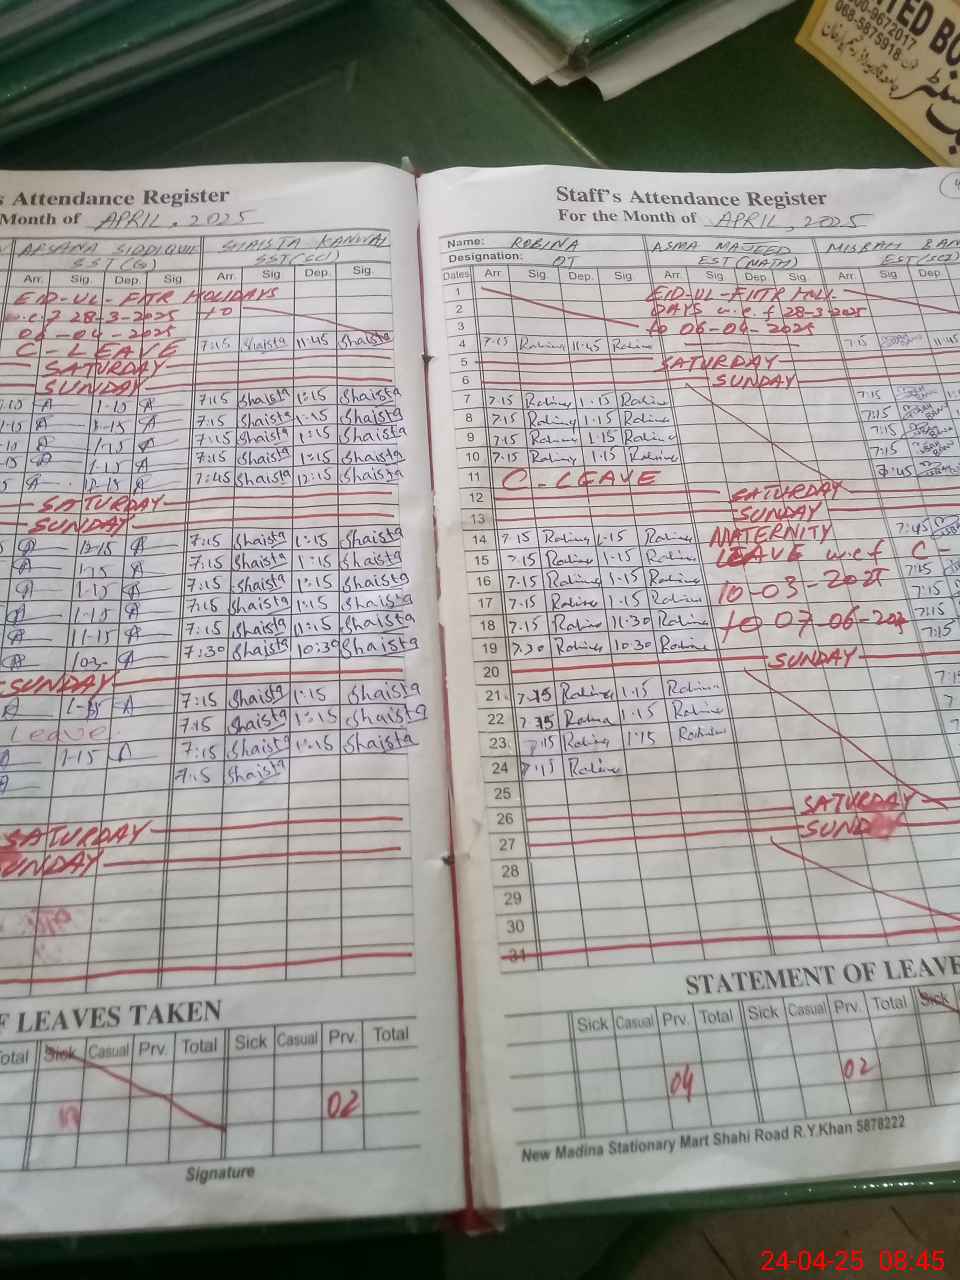 s Attendance Register
Month of APRIL, 2025
AFSANA SIDDIQUE SHAISTA KANWAL
SST(G) SST(SCI)
Arr. Sig. Dep. Sig. Arr. Sig Dep. Sig.
EID-UL-FITR HOLIDAYS
w.e.f 28-3-2025 to
06-04-2025
C-LEAVE 7:15 Shaista 11:45 Shaista
SATURDAY
SUNDAY
1-15 7:15 Shaista 1:15 Shaista
1-15 7:15 Shaista 1:15 Shaista
1-15 7:15 Shaista 1:15 Shaista
1-15 7:15 Shaista 1:15 Shaista
12-15 7:45 Shaista 12:15 Shaista
SATURDAY
SUNDAY
7:15 Shaista 1:15 Shaista
1-15 7:15 Shaista 1:15 Shaista
1-15 7:15 Shaista 1:15 Shaista
1-15 7:15 Shaista 1:15 Shaista
11-15 7:15 Shaista 11:15 Shaista
7:30 Shaista 10:30 Shaista
SUNDAY
7:15 Shaista 1:15 Shaista
Leave 7:15 Shaista 1:15 Shaista
1-15 7:15 Shaista 1:15 Shaista
7:15 Shaista
SATURDAY
SUNDAY
F LEAVES TAKEN
otal Sick Casual Prv. Total Sick Casual Prv. Total
02
Signature
Staff's Attendance Register
For the Month of APRIL, 2025
Name: ROBINA ASMA MAJEED MISBAH
Designation: EST(MATH) EST(SCI)
Dates Arr. Sig. Dep. Sig. Arr. Sig. Dep. Sig. Arr. Sig. Dep
1 EID-UL-FITR HOLI-
2 DAYS w.e.f 28-3-2025
3 to 06-04-2025
4 7-15 Robina 11-45 Robina 7:15 11:45
5 SATURDAY
6 SUNDAY
7 7-15 Robina 1-15 Robina 7:15
8 7-15 Robina 1-15 Robina 7:15
9 7-15 Robina 1-15 Robina 7:15
10 7-15 Robina 1-15 Robina 7:15
11 C-LEAVE 7:45
12 SATURDAY
13 SUNDAY
14 7-15 Robina 1-15 Robina MATERNITY 7:45
15 7-15 Robina 1-15 Robina LEAVE w.e.f C-
16 7-15 Robina 1-15 Robina 10-03-2025 7:15
17 7-15 Robina 1-15 Robina 7:15
18 7-15 Robina 11-30 Robina to 07-06-202 7:15
19 7-30 Robina 10-30 Robina 7:15
20 SUNDAY
21 7-15 Robina 1-15 Robina
22 7-15 Robina 1-15 Robina
23 7-15 Robina 1-15 Robina
24 7-15 Robina
25
26 SATURDAY
27 SUNDAY
28
29
30
31
STATEMENT OF LEAVE
Sick Casual Prv. Total Sick Casual Prv. Total Sick
04 02
New Madina Stationary Mart Shahi Road R.Y.Khan 5878222
068-5875918
24-04-25 08:45